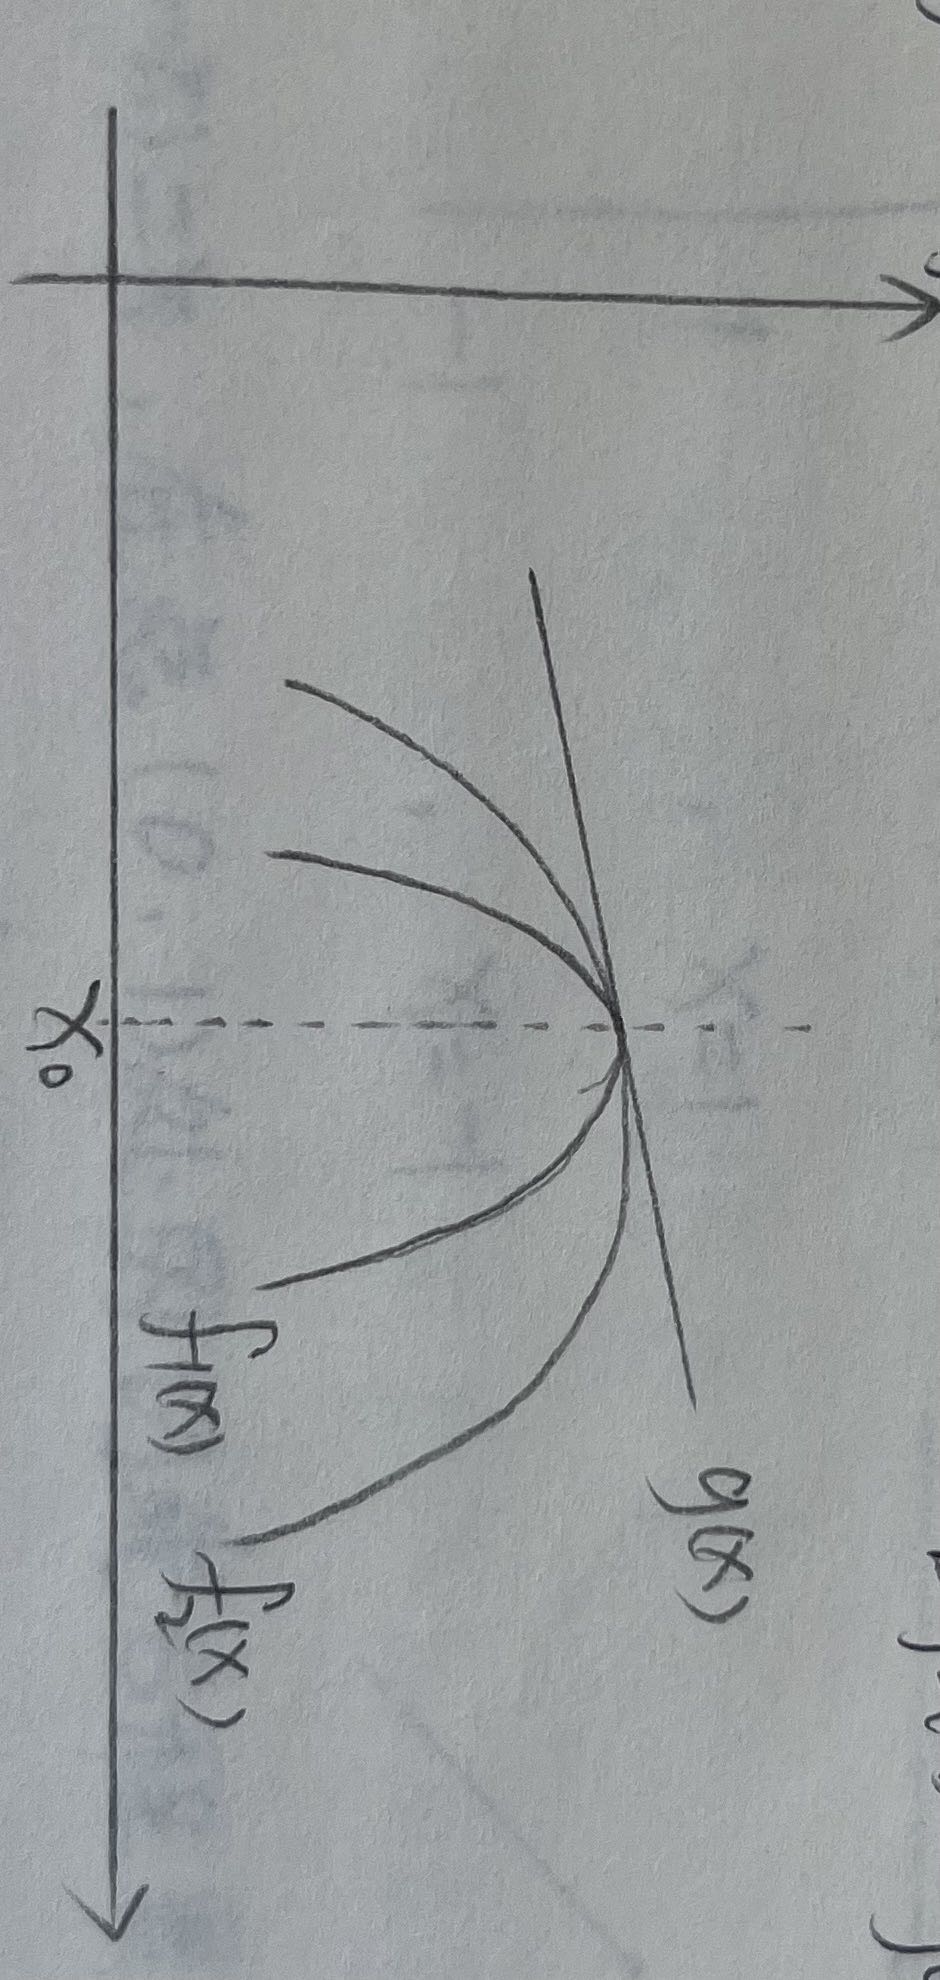 g(x)
f₁(x) f₂(x)
x₀